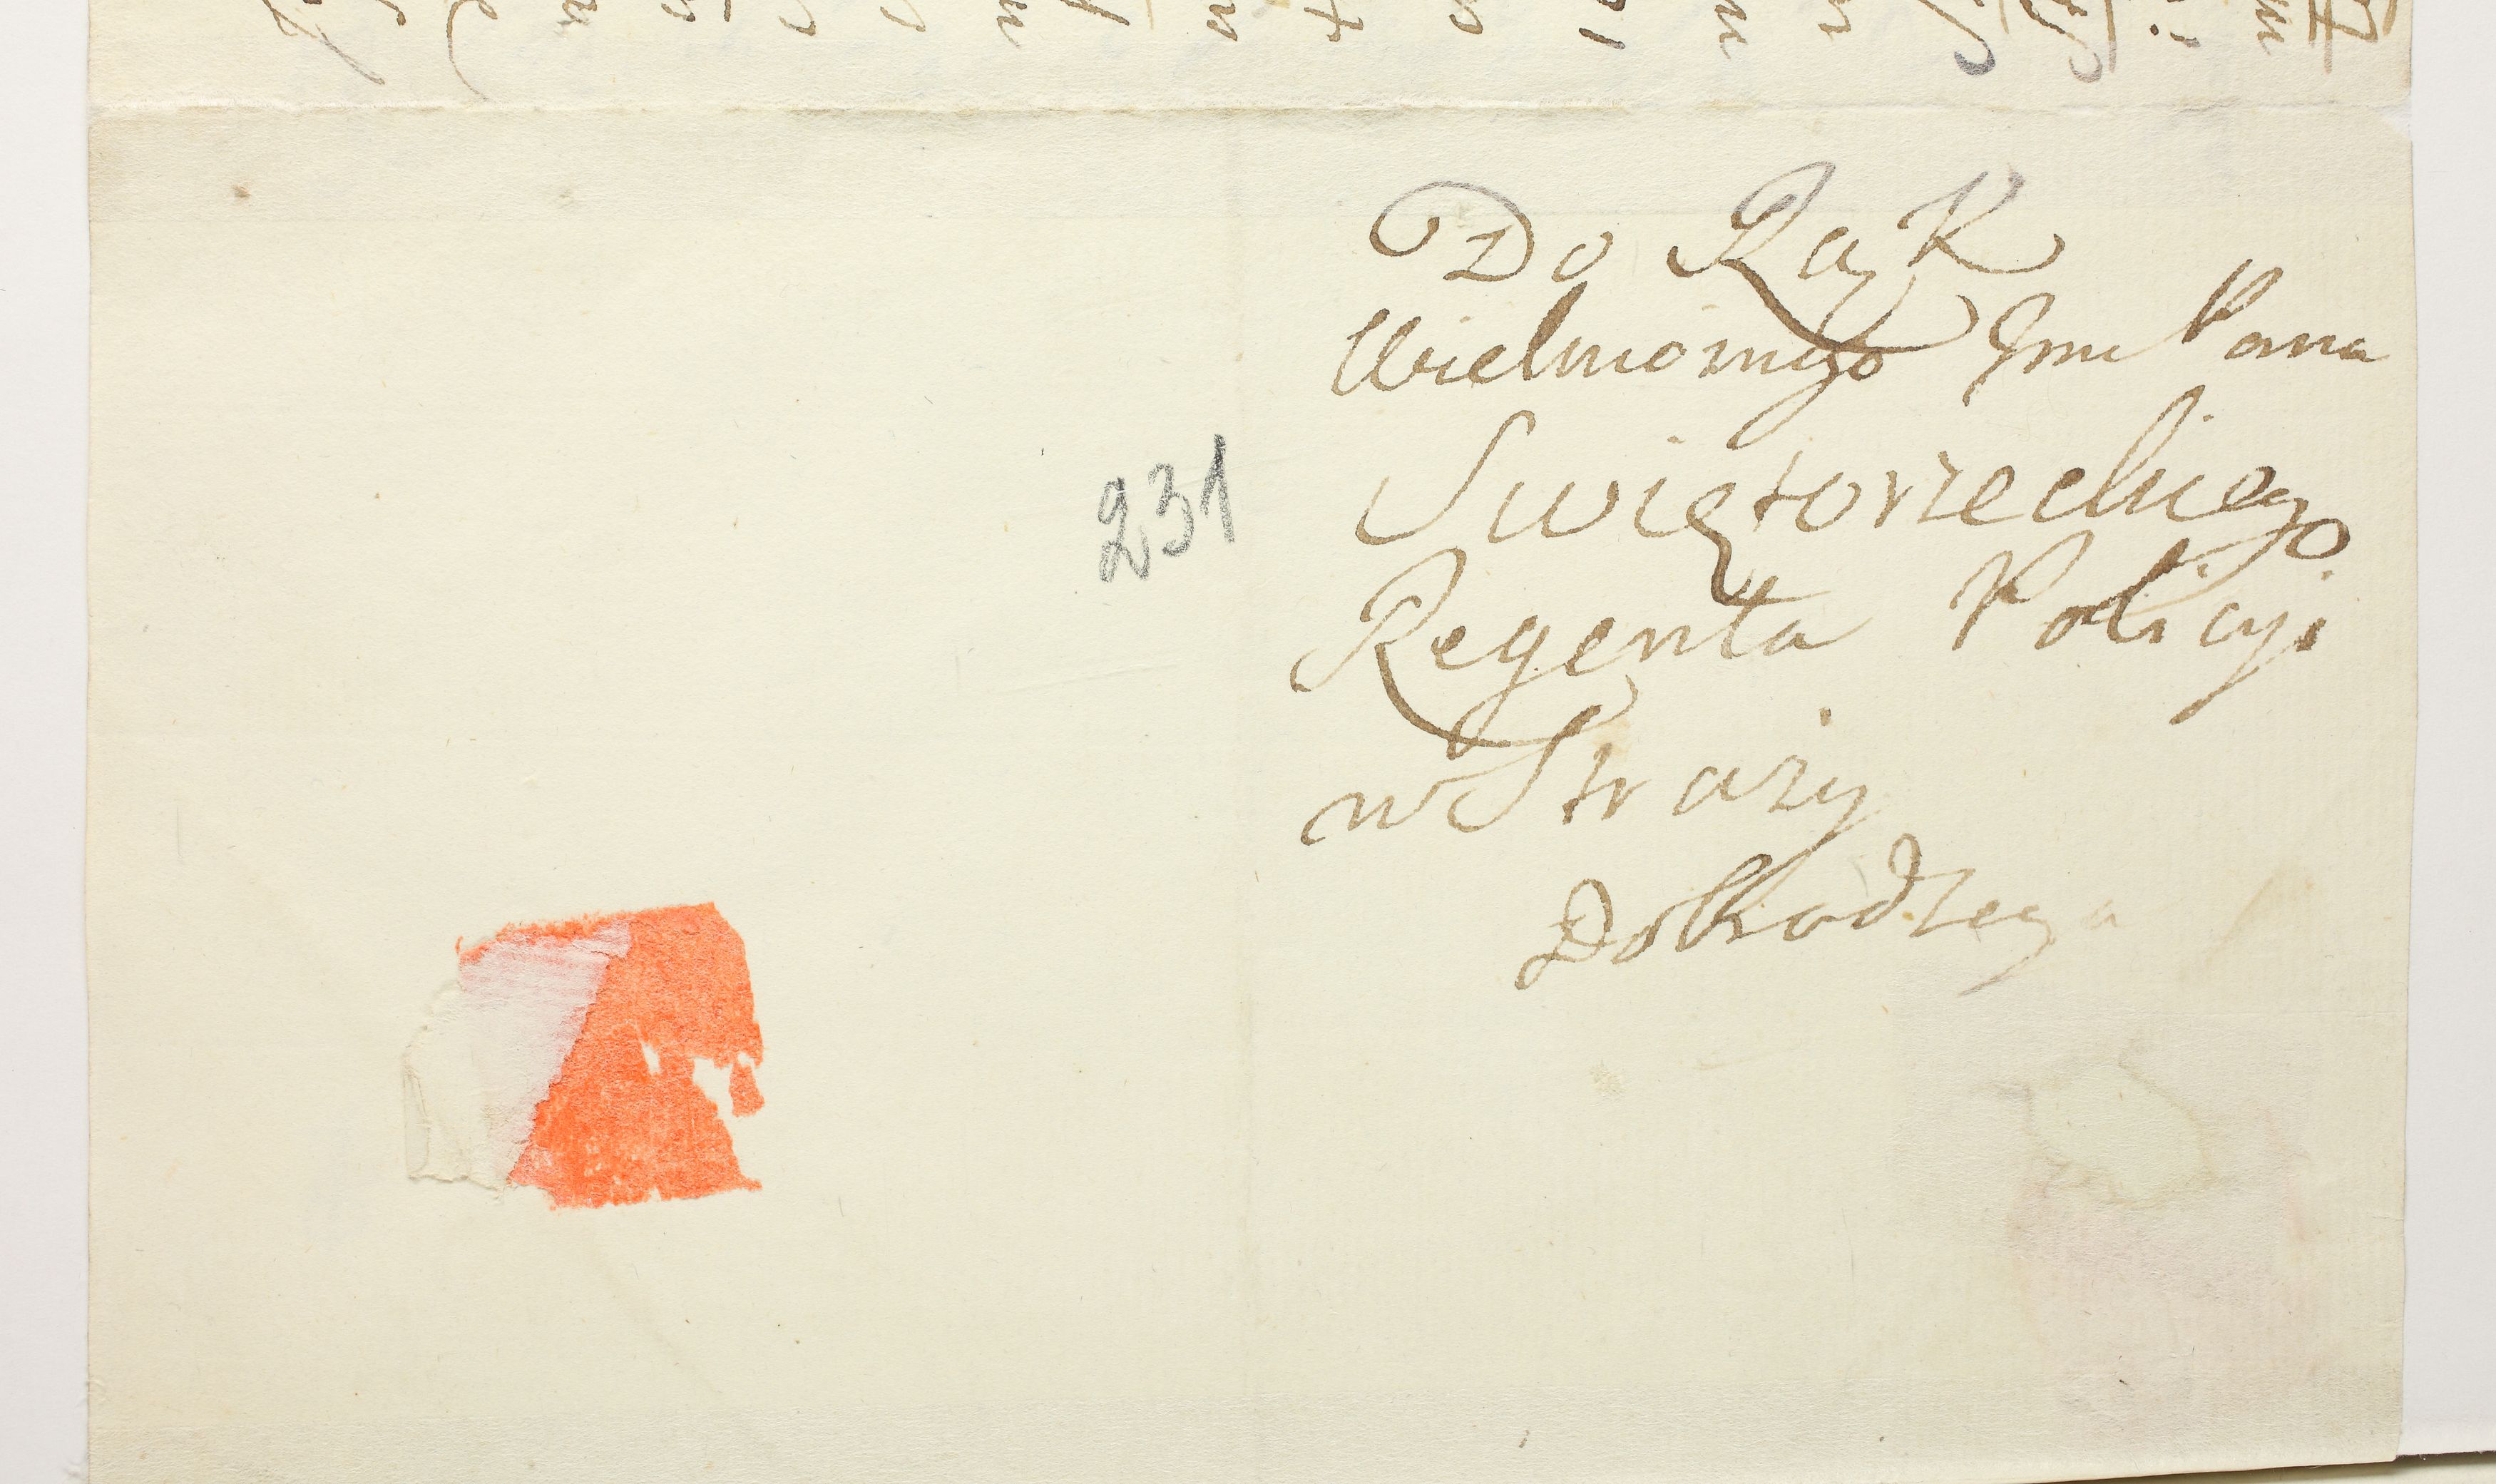 Do Rąk
Wielmożnego Jmć Pana
Swiętorzeckiego
Regenta Policyi
w Straży
Dobrodzeya
231